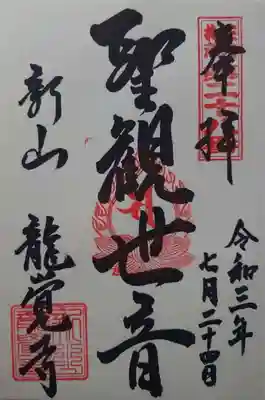 奉拝
令和三年
七月二十四日
聖観世音
新山
龍覚寺